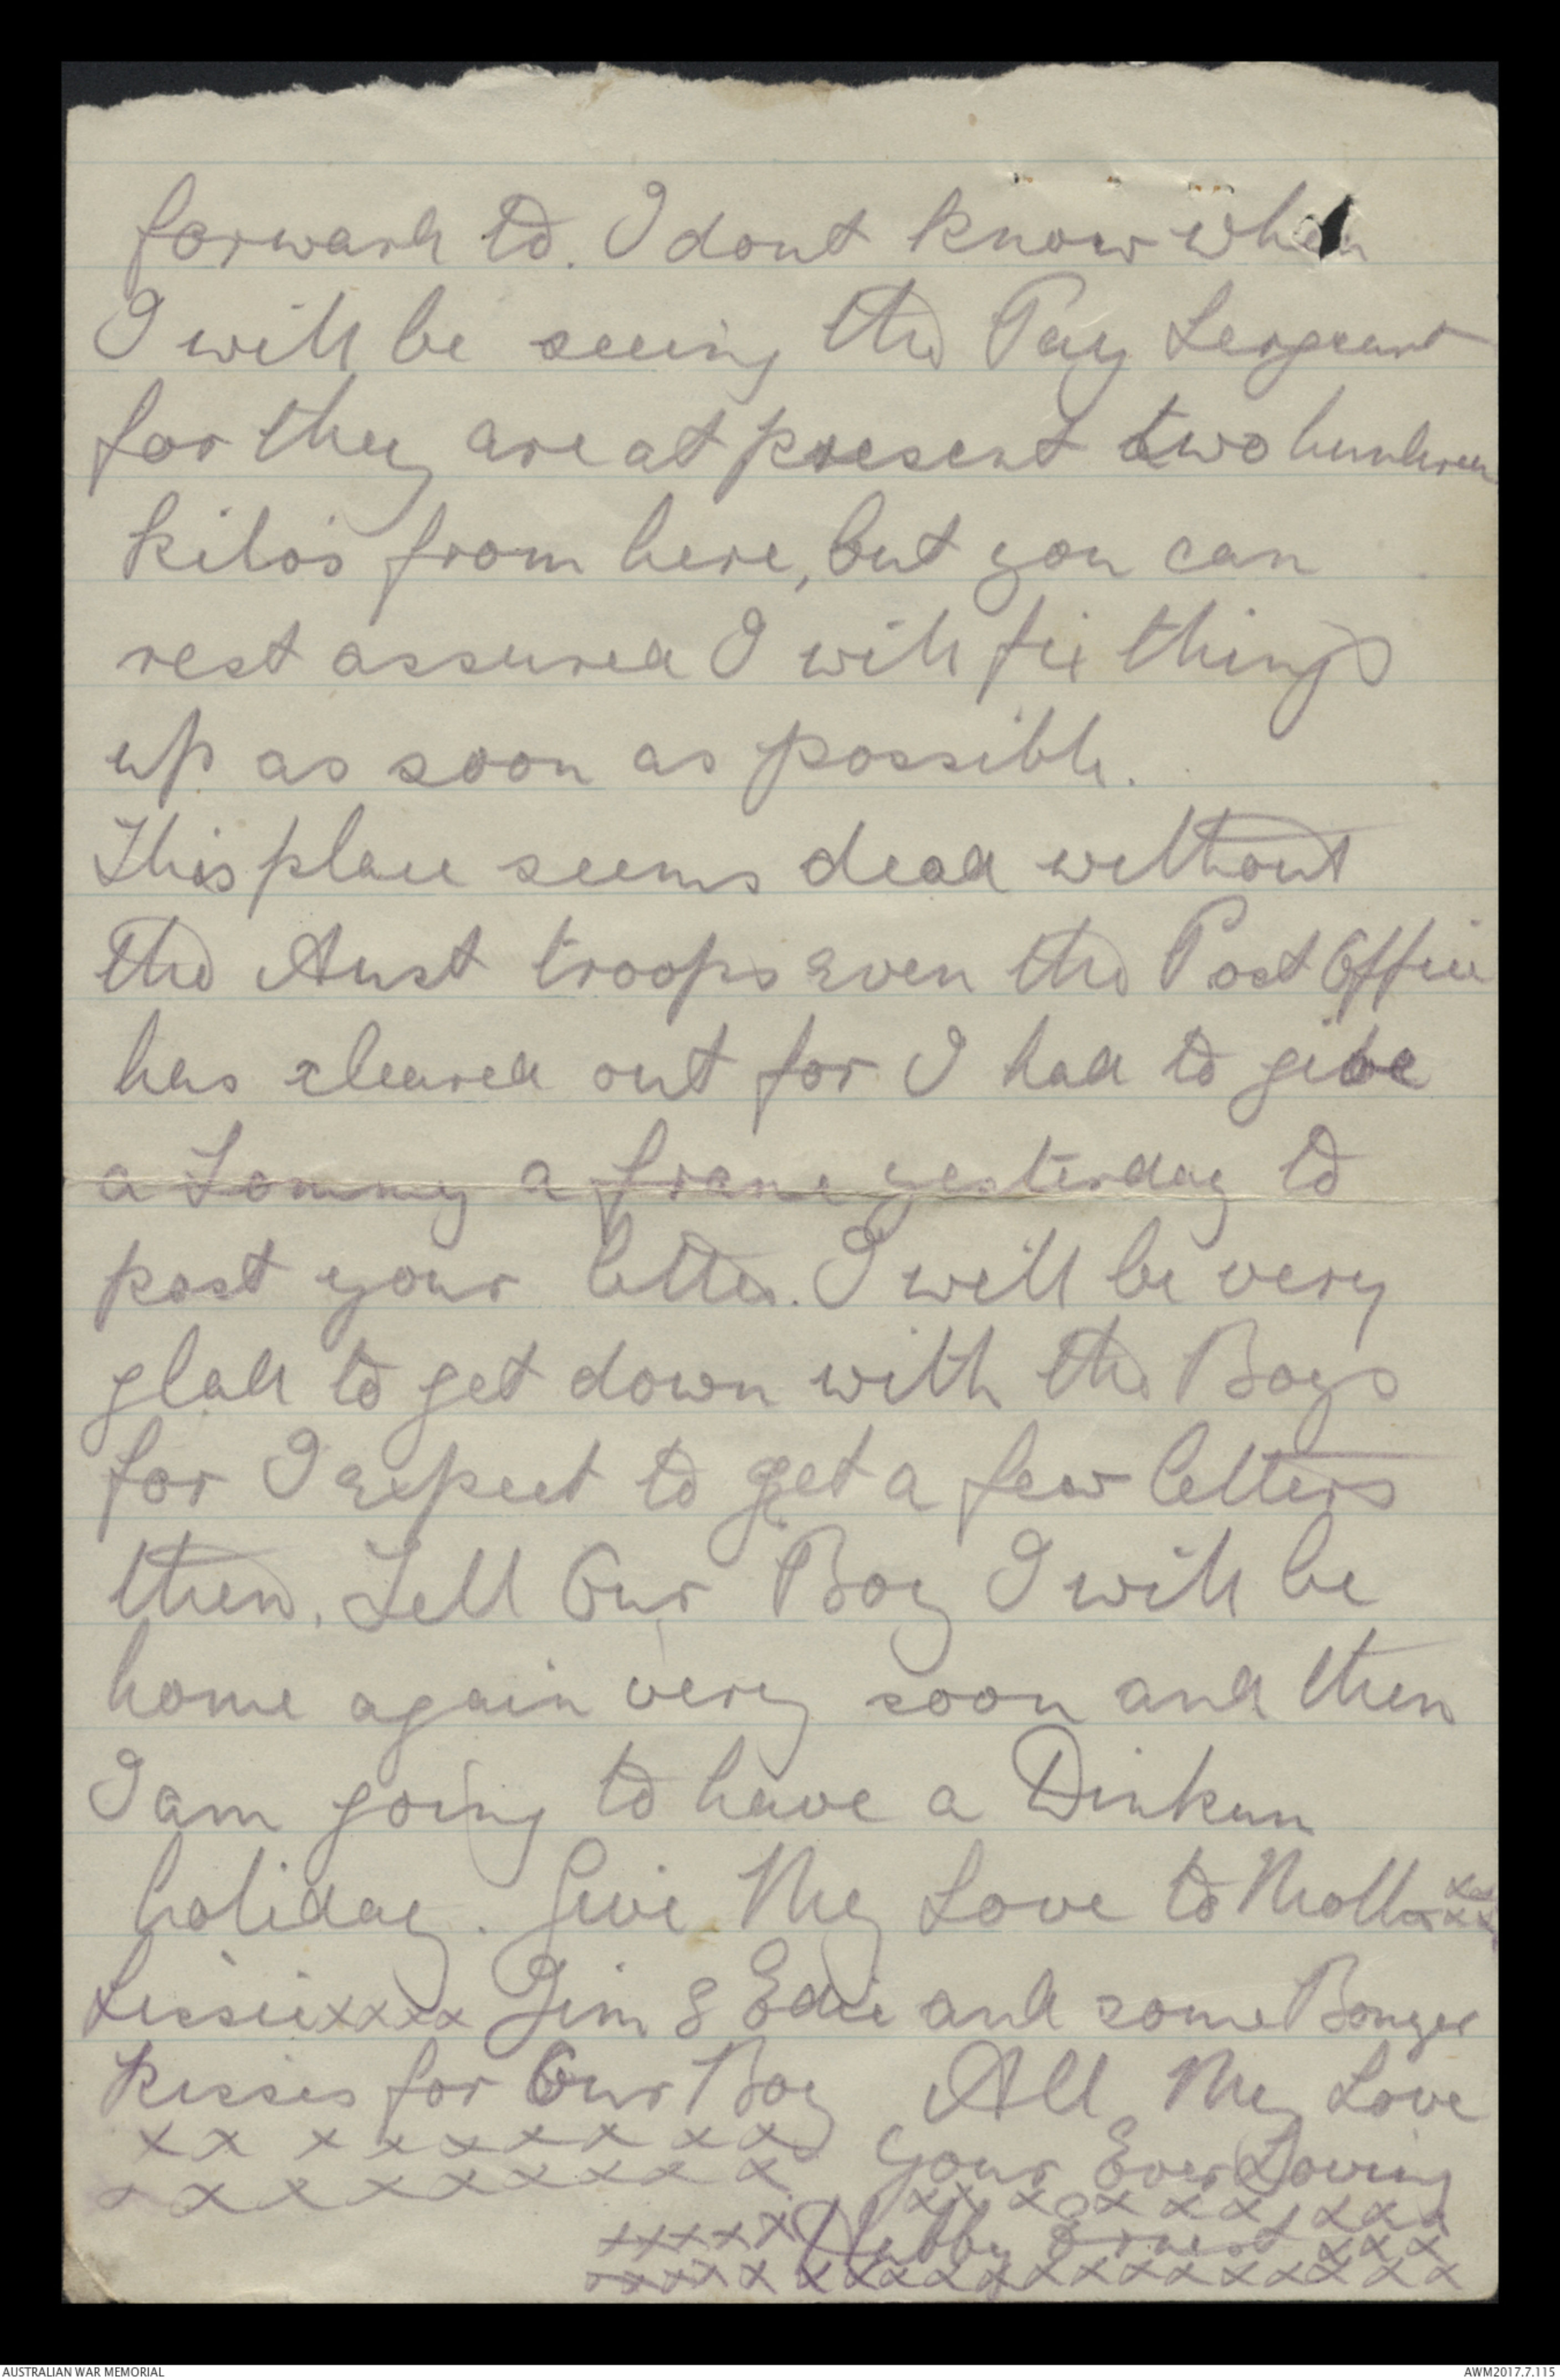 forward to. I dont know when
I will be seeing the Pay Sergeant
for they are at present two hundred
kilo's from here, but you can
rest assured I will fix things
up as soon as possible.
This place seems dead without
the Aust troops even the Post Office
has cleared out for I had to give
a Tommy a franc yesterday to
post your letter. I will be very
glad to get down with the Boys
for I expect to get a few letters
then. Tell Our Boy I will be
home again very soon and then
I am going to have a Dinkum
holiday. Give My Love to xxxx
Lissie xxxx Jim & Edie and some Bonzer
kisses for Our Boy All My Love
xx x xxxxxx xx Your Ever Loving
xxxxxxxxxx xx x x x x x x x x
xxxxx Hubby Ernest xxx
xxxxx x x x x x x x x x x x x x x x x
AUSTRALIAN WAR MEMORIAL AWM2017.7.115